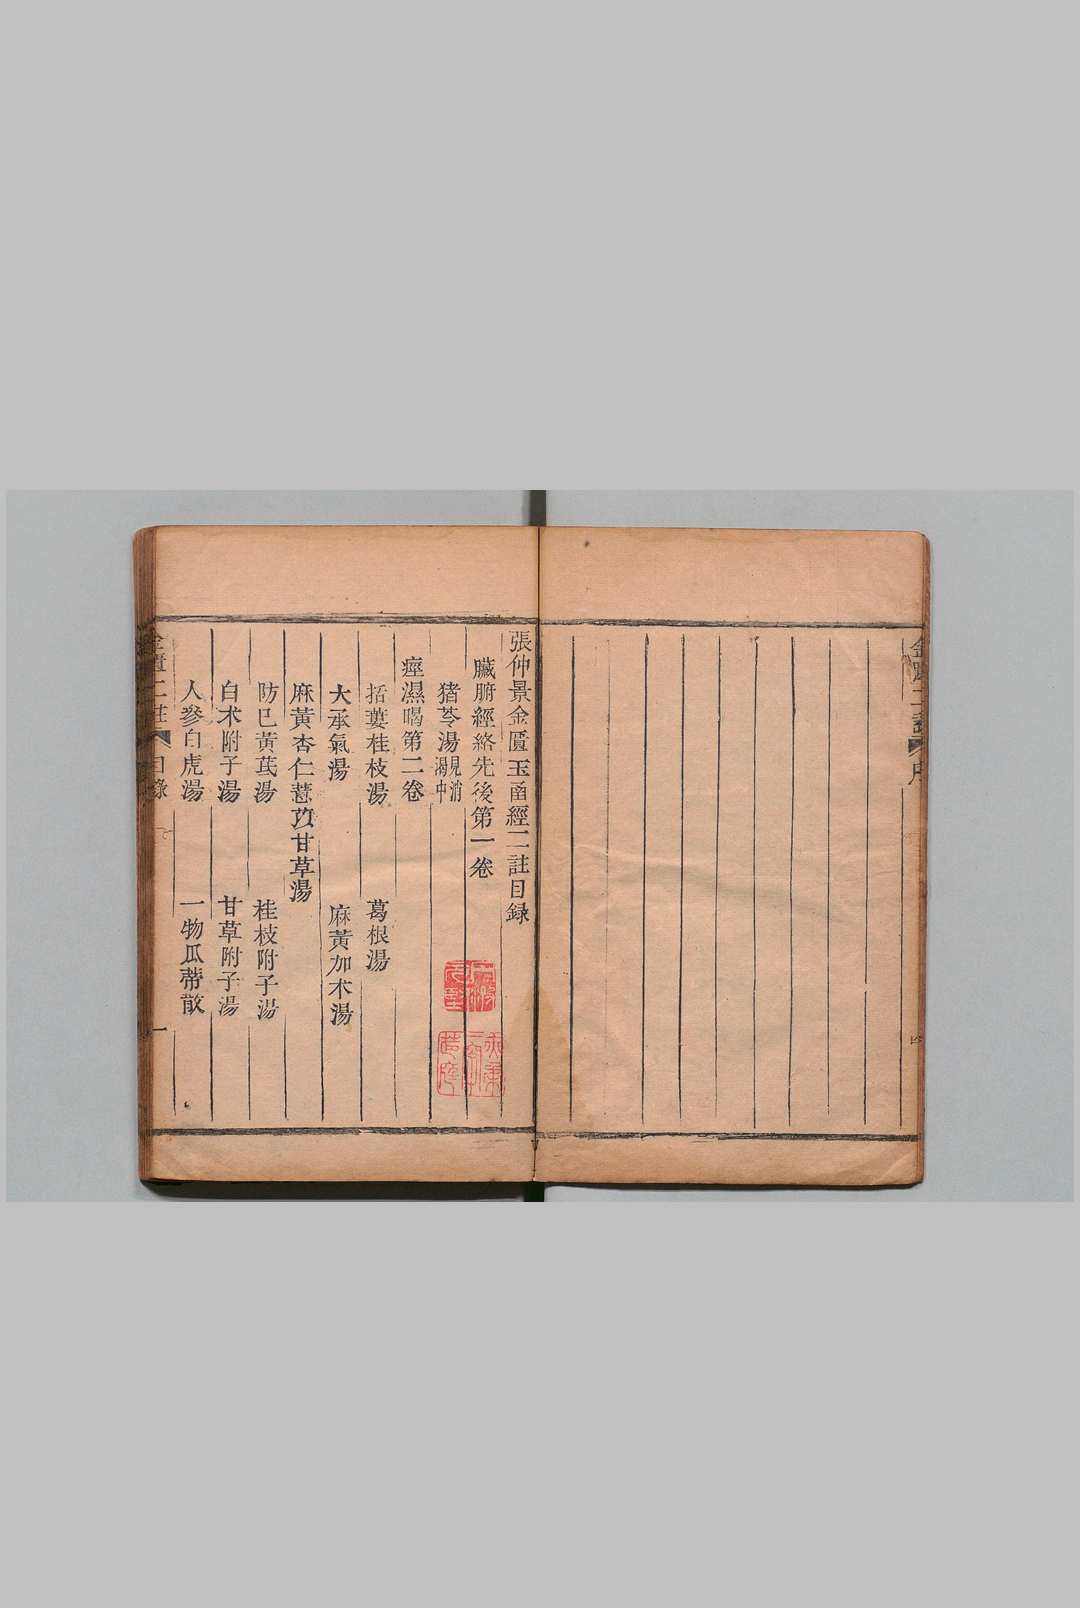 張仲景金匱玉函經二註目録
臟腑經絡先後第一卷
猪苓湯見消渴中
痙濕暍第二卷
括蔞桂枝湯 葛根湯
大承氣湯 麻黃加术湯
麻黃杏仁薏苡甘草湯
防己黃芪湯 桂枝附子湯
白术附子湯 甘草附子湯
人參白虎湯 一物瓜蒂散
金匱二註 目錄 一